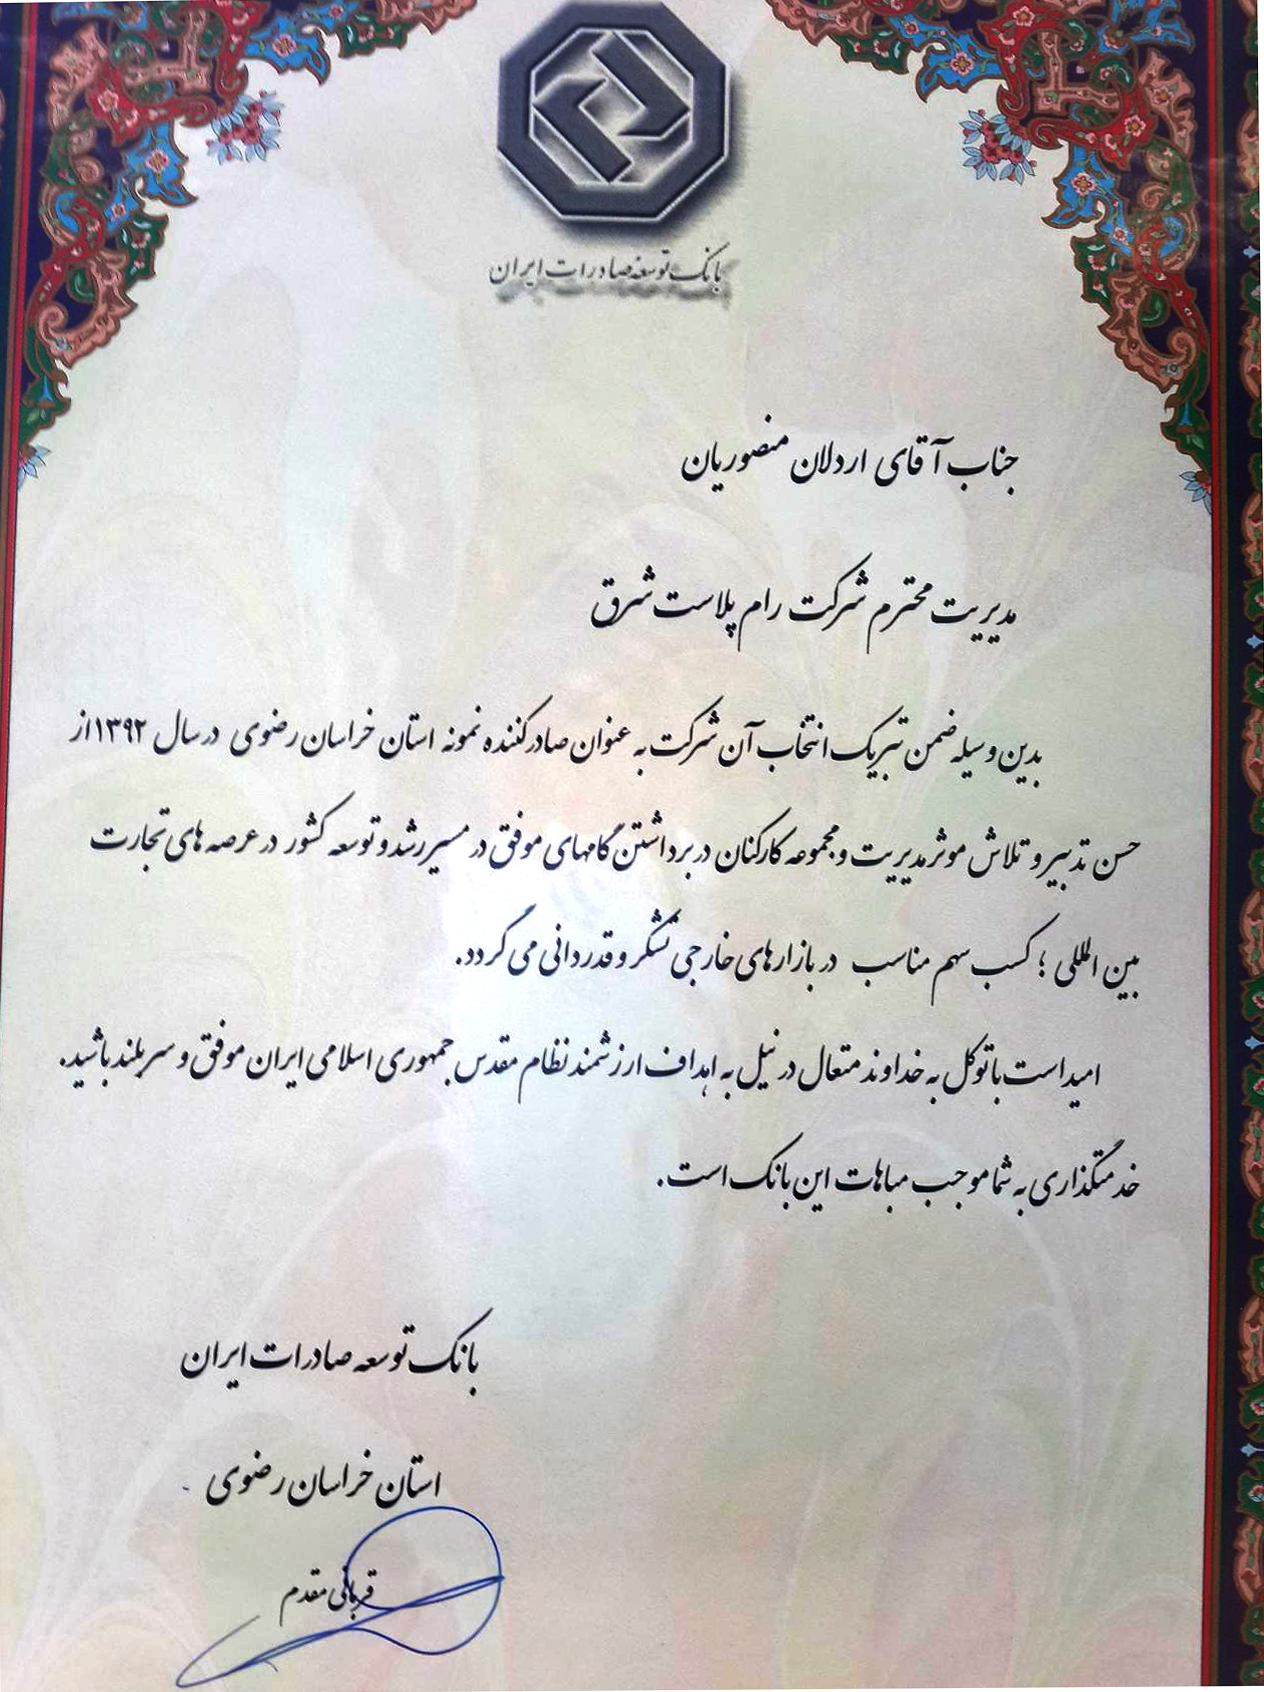 بانک توسعه صادرات ایران
جناب آقای اردلان منصوریان
مدیریت محترم شرکت رام پلاست شرق
بدین وسیله ضمن تبریک انتخاب آن شرکت به عنوان صادرکننده نمونه استان خراسان رضوی در سال ۱۳۹۲ از
حسن تدبیر و تلاش موثر مدیریت و مجموعه کارکنان در برداشتن گامهای موفق در مسیر رشد و توسعه کشور در عرصه های تجارت
بین المللی ؛ کسب سهم مناسب در بازارهای خارجی تشکر و قدردانی می گردد.
امید است با توکل به خداوند متعال در نیل به اهداف ارزشمند نظام مقدس جمهوری اسلامی ایران موفق و سربلند باشید.
خدمتگذاری به شما موجب مباهات این بانک است.
بانک توسعه صادرات ایران
استان خراسان رضوی
قربانی مقدم